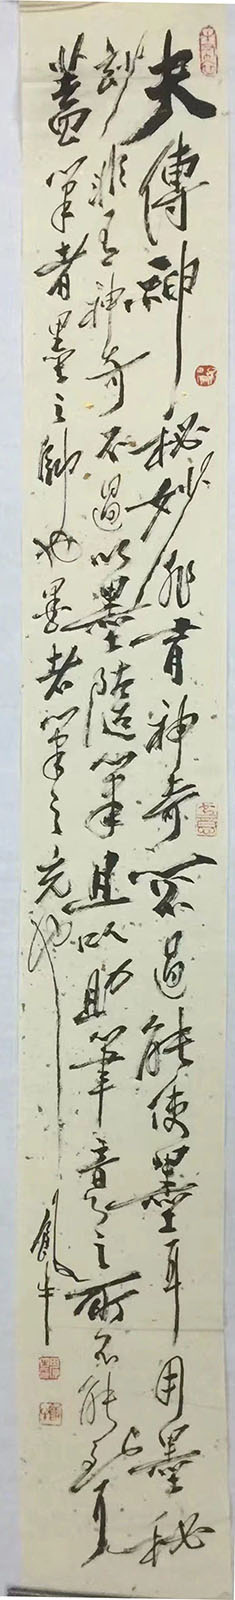 夫傳神秘妙非有神奇不過能使墨耳用墨秘
妙非有神奇不過以墨隨筆且以助筆意之所不能到耳
蓋筆者墨之帥也墨者筆之充也